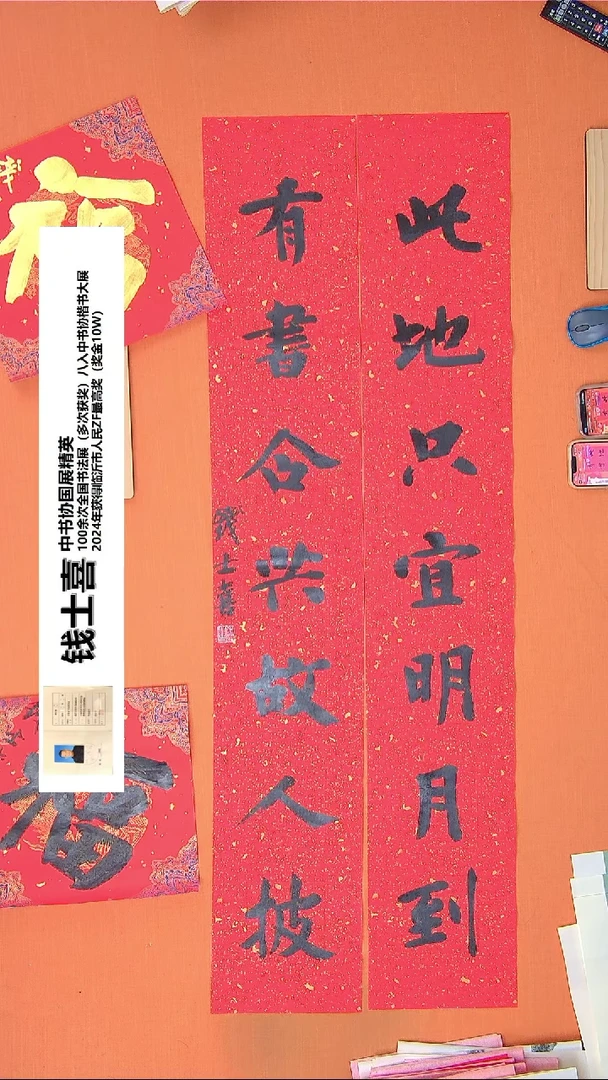 此地只宜明月到
有書合共故人披
钱士喜
钱士喜
中书协国展精英
100余次全国书法展（多次获奖）八入中书协楷书大展
2024年获得临沂市人民ZF最高奖（奖金10W）
福
福